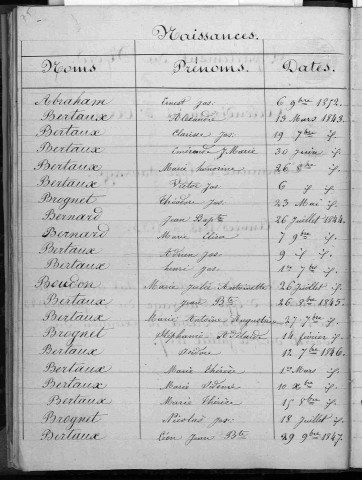 Naissances.
Noms Prénoms. Dates.
Abraham Ernest Jos. 6 9bre 1852.
Bertaux 13 Mars 1843.
Bertaux Clarisse Jos. 19 7bre if.
Bertaux Emérande J. Marie 30 Juin if.
Bertaux Marie honorine 26 8bre if.
Bertaux Victor Jos. 6 if if.
Brognet Théodore Jos. 23 Mai if.
Bernard Jean Bapte 26 Juillet 1844.
Bernard Marie Elisa 7 9bre if.
Bertaux Adrien Jos. 9 if if.
Bertaux henri Jos. 1er 7bre if.
Boudon Marie Julie Antoinette 26 Juillet if.
Bertaux Jean Bte 26 8bre 1845.
Bertaux Marie Antoine Augustine 27 7bre if.
Brognet Stéphanie Adélaïde 14 février if.
Bertaux Isidore 12 7bre 1846.
Bertaux Marie Thérèse 1er Mars if.
Bertaux Marie 10 Xbre if.
Bertaux Marie Thérèse 15 8bre if.
Brognet Nicolas Jos. 18 Juillet if.
Bertaux Léon Jean Bte 29 9bre 1847.